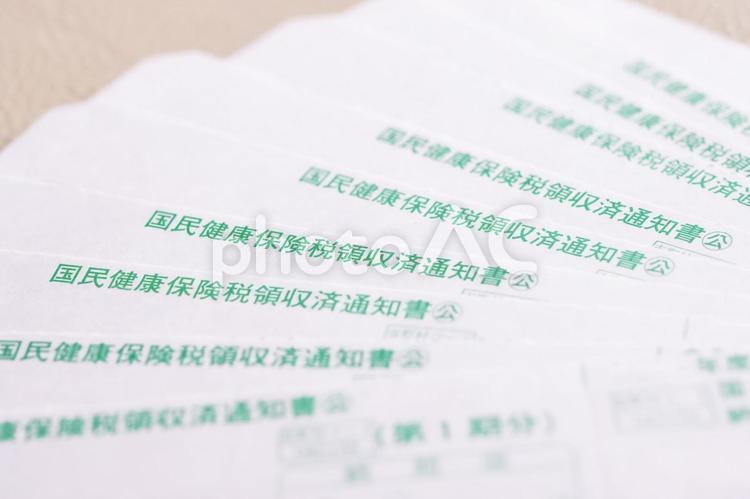 国民健康保険税領収済通知書㊢
国民健康保険税領収済通知書㊢
国民健康保険税領収済通知書㊢
国民健康保険税領収済通知書㊢
国民健康保険税領収済通知書㊢
国民健康保険税領収済通知書
国民健康保険税領収済通知書
国民健康保険税領収済通知書
康保険税領収済通知書
photoAC
年度
国
(第1期分)